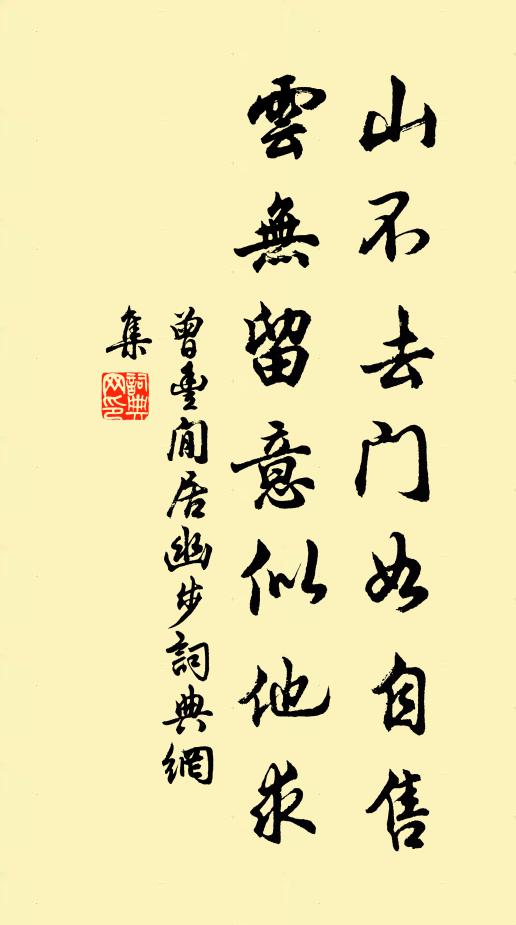 山不去門如自售
雲無留意似他求
曾豐閒居幽步詞典網
集
詞典
网印